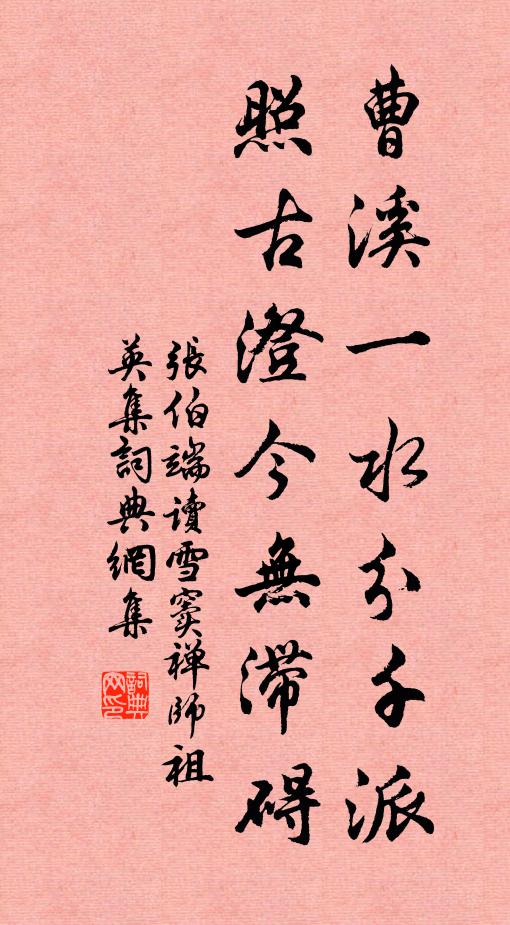 曹溪一水分千派
照古澄今無滞碍
張伯端读雪窦禅師祖
英集詞典網集
詞典
网印